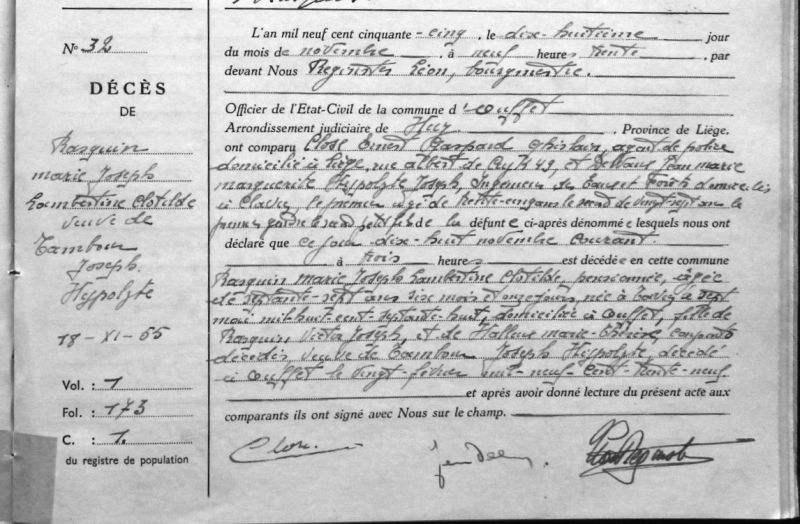 N° 32
DÉCÈS
DE
Rasquin
Marie Joseph
Lambertine Clotilde
veuve de
Tambour
Joseph
Hypolyte
18-XI-55
Vol. : 1
Fol. : 173
C. : 1.
du registre de population
L'an mil neuf cent cinquante-cinq, le dix-huitième jour
du mois de novembre, à neuf heures trente, par
devant Nous Léon, bourgmestre.
Officier de l'Etat-Civil de la commune d'Ouffet
Arrondissement judiciaire de Huy, Province de Liége,
ont comparu Close Ernest Gaspard Ghislain, agent de police
domicilié à Liége, rue Albert de 49, et Jean Marie
Marguerite Hypolyte Joseph, Ingénieur des Eaux et Forêts domicilié
à Clavier, le premier âgé de trente-cinq ans le second de vingt-sept ans le
premier le second petit fils de la défunte ci-après dénommée lesquels nous ont
déclaré que ce jour dix-huit novembre courant
à trois heures est décédée en cette commune
Rasquin Marie Joseph Lambertine Clotilde, pensionnée, âgée
de septante-sept ans six mois et onze jours, née à le sept
mai mil-huit-cent-septante-huit, domiciliée à Ouffet, fille de
Rasquin Victor Joseph, et de Marie-Thérèse, conjoints
décédés, veuve de Tambour Joseph Hippolyte, décédé
à Ouffet le vingt février mil-neuf-cent-trente-neuf.
et après avoir donné lecture du présent acte aux
comparants ils ont signé avec Nous sur le champ.
Close.